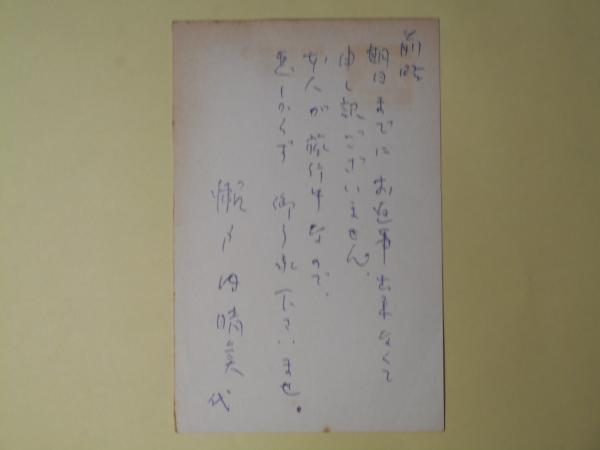 前略
期日までにお返事出来なくて
申し訳ございません。
本人が旅行中なので、
悪しからず 御了承下さいませ。
瀬戸内晴美 代